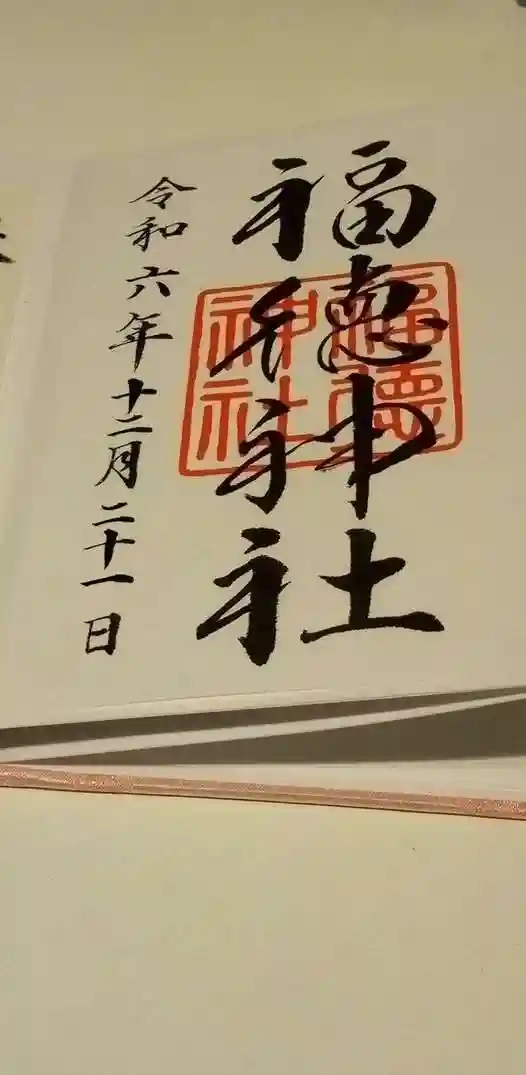 福徳神社
福徳神社
令和六年十二月二十一日